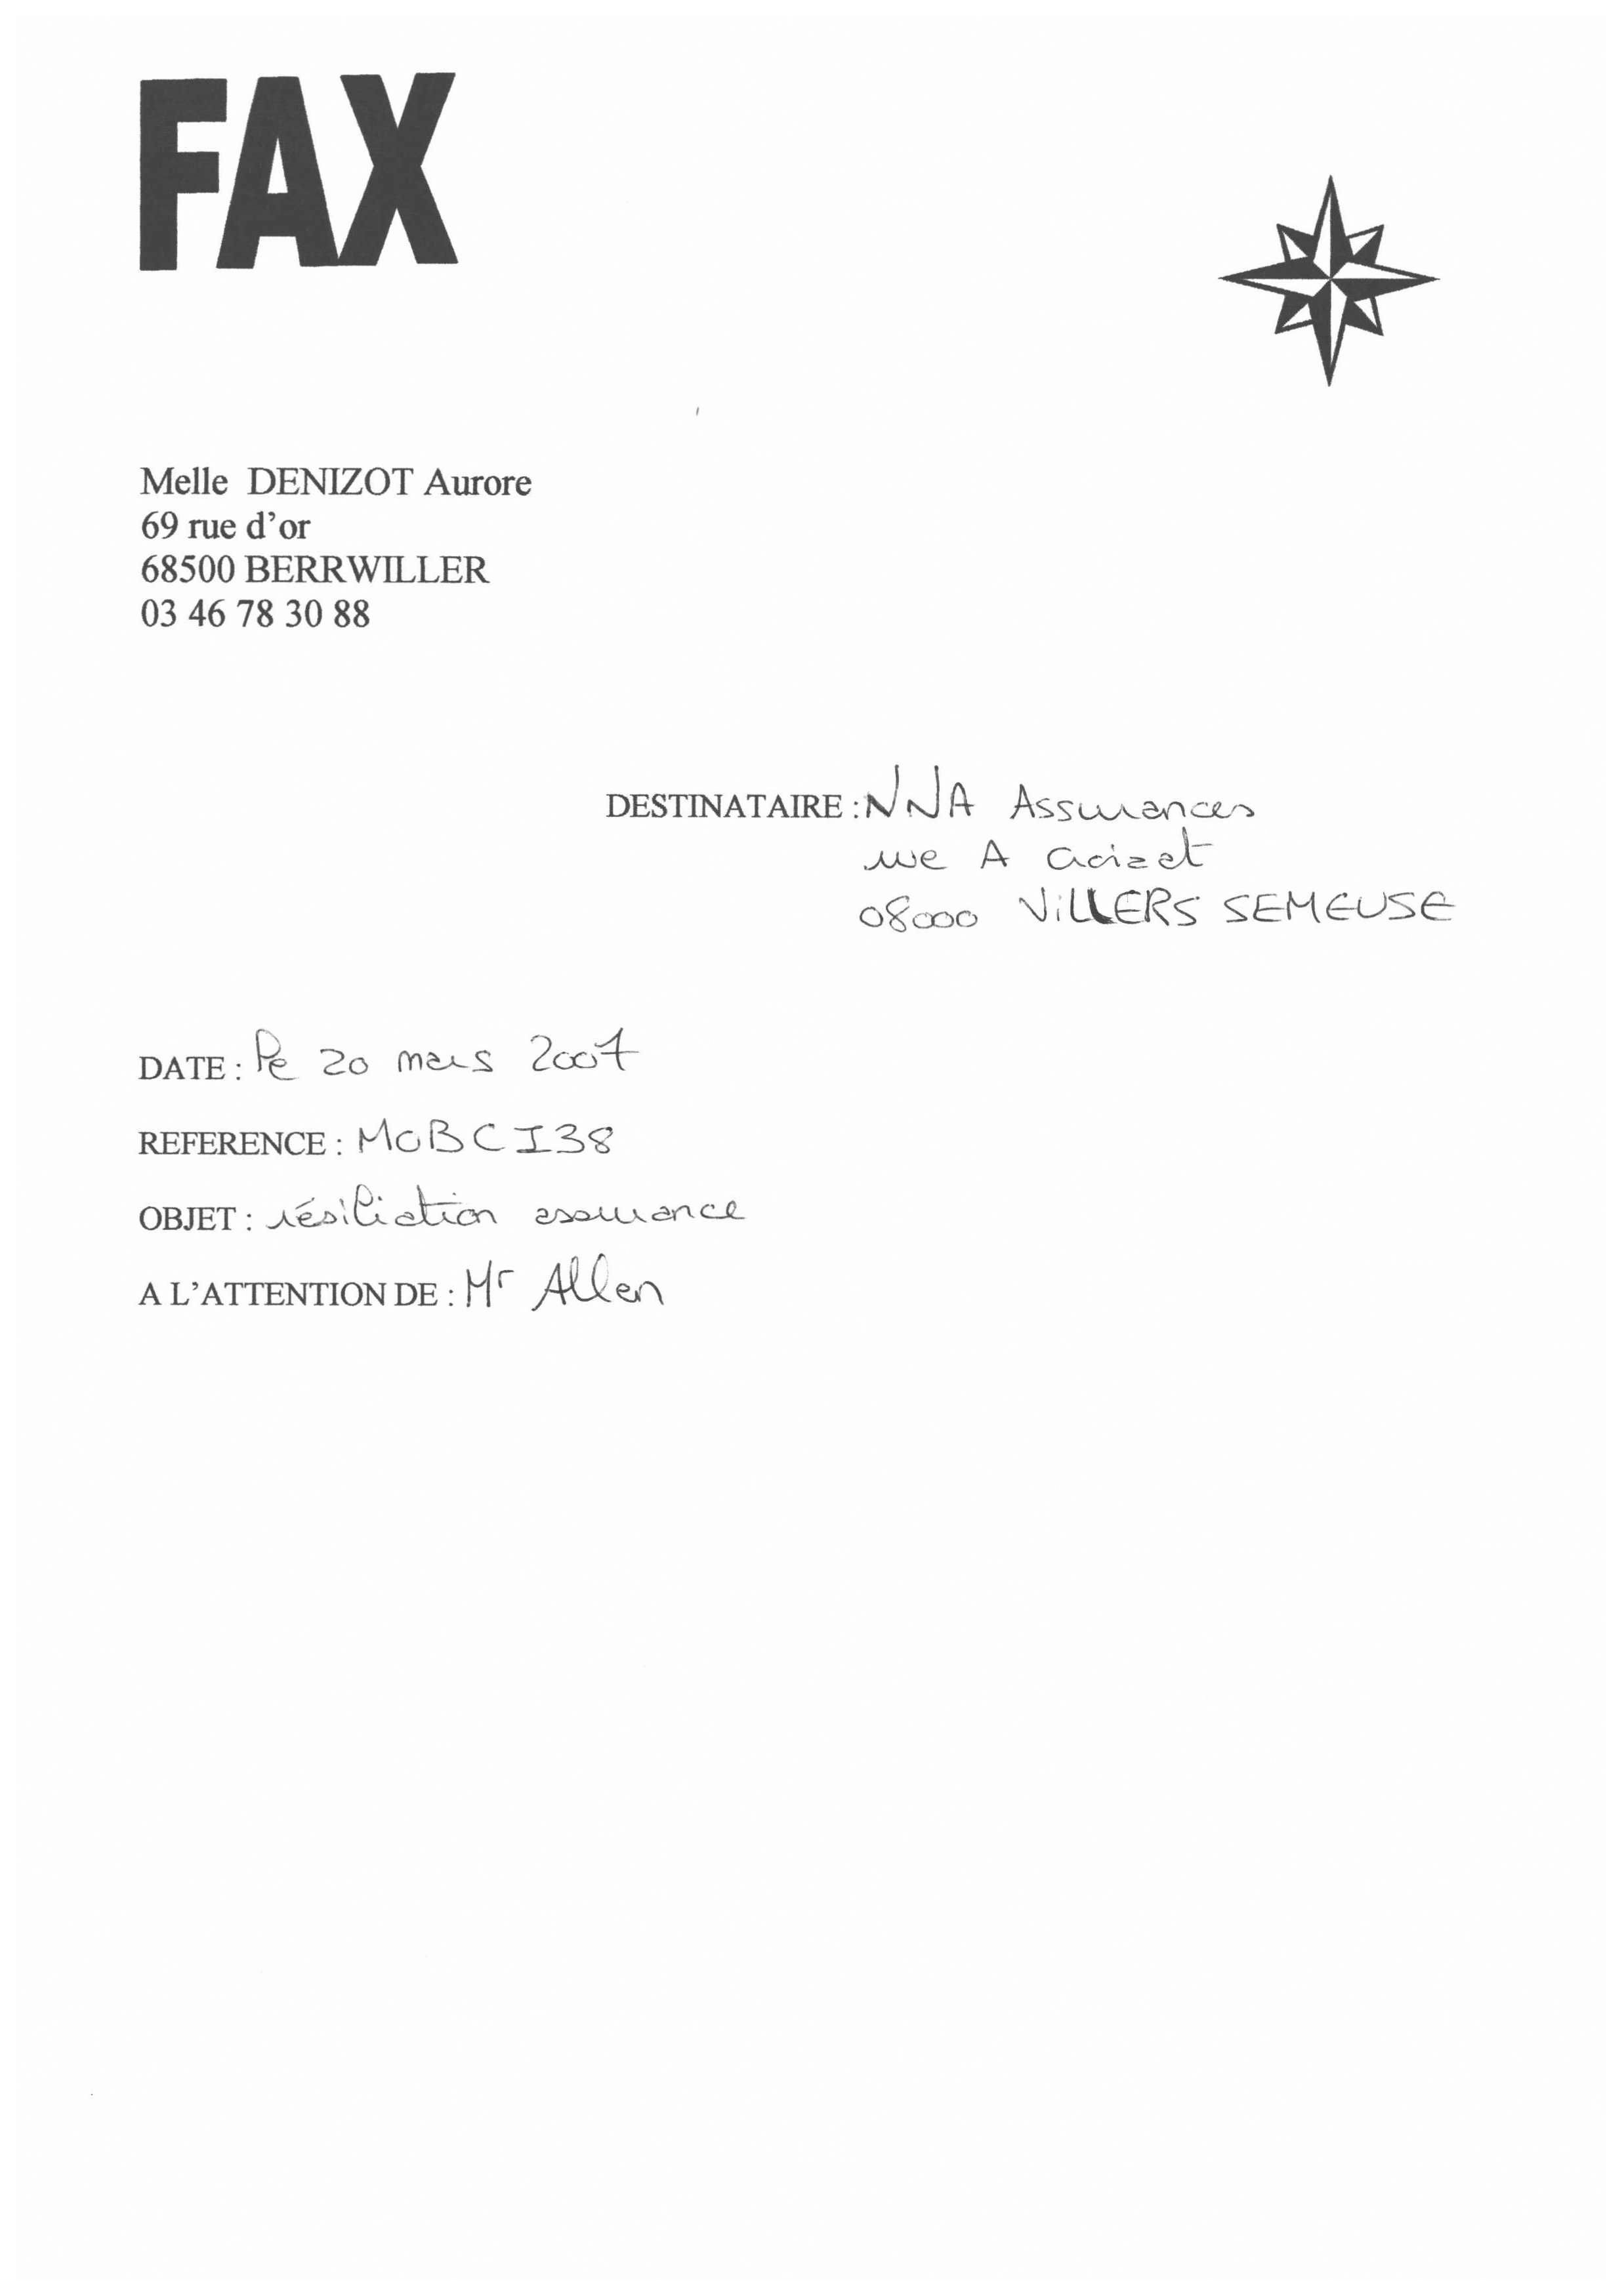 FAX
Melle DENIZOT Aurore
69 rue d'or
68500 BERRWILLER
03 46 78 30 88
DESTINATAIRE : NNA Assurances
rue A
08000 ViLLERS SEMEUSE
DATE : le 20 mars 2007
REFERENCE : MOBCI38
OBJET : résiliation assurance
A L'ATTENTION DE : Mr Allen